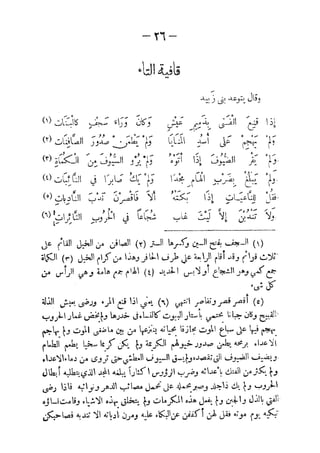 — ٢٦ —
قافية التاء
وقال يتوعد بنى زبيد
إذا قنع الفتى بذميم عيش وكان وراء سجف كالبنات (١)
ولم يهجم على أسد المنايا ولم يطعن صدور الصافنات (٢)
ولم يقر الضيوف إذا أتوه ولم يرو السيوف من الكماة (٣)
ولم يبلغ بضرب الهام مجدا ولم يك صابرا في النائبات (٤)
فقل للناعيات إذا بكته ألا فاقصرن ندب النادبات (٥)
ولا تندبن إلا ليث غاب شجاعا في الحروب الثائرات (٦)
(١) السجف بفتح السين وكسرها الستر (٢) الصافن من الخيل القائم على
ثلاث قوائم وقد أقام الرابعة على طرف الحافر وهذا من كرام الخيل (٣) الكماة
جمع كمى وهو الشجاع أو لابس الحديد (٤) الهام جمع هامة وهى الرأس من
كل شىء
(٥) أقصر قصر وتقاصر انتهى (٦) يعنى اذا قنع المرء ورضى بعيش الذلة
القبيح وكان جبانا يحتمى بأستار البيوت كالنساء فى خدرها ولم يخض غمار الحروب
يهجم فيها على سباع الموت مجازفا بحياته ينتزعها من بين ماضغى الموت ولم يهاجم
الاعداء برمحه يطعن صدور خيولهم الكريمة ولم يكن كريما سخيا يطعم الطعام
ويضيف الضيوف التى تقصده ولم يسق السيوف العطشى حتى تروى من دماء الاعداء
ولم يكثر من الفتك بأعدائه وضرب الرؤوس اكثارا يبلغه المجد الذى يتطلبه أبطال
الحروب ولم يك ذا جلد وصبر يحمله على تحمل مصائب الدهر ونوائبه فاذا رضى
الفتى بالذل والجبن ولم يفعل هذه المكرمات ولم يتخلق بهذه الاشياء وقامت نساؤه
تبكيه يوم موته فقل لهن أكففن عن البكاء عليه ومرن ندابانه ألا تندبه فصاحبكن